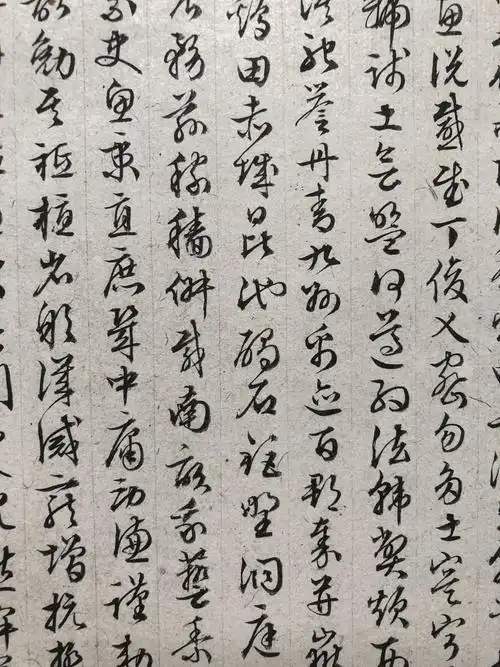 惠說感武丁俊乂密勿多士寔寧
虢踐土會盟何遵約法韓弊煩刑
漠馳譽丹青九州禹跡百郡秦并嶽
雞田赤城昆池碣石鉅野洞庭
農務茲稼穡俶載南畝我藝黍
素史魚秉直庶幾中庸勞謙謹敕
勉其祗植省躬譏誡寵增抗極